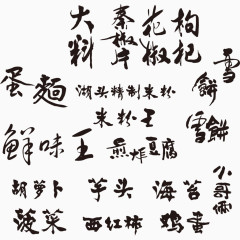 大料
秦椒片
花椒
枸杞
雪餅
蛋麵
湖头精制米粉
米粉王
雪餅
鮮味王
煎炸豆腐
小哥俩
胡萝卜
芋头
海苔
菠菜
西红柿
鸡蛋